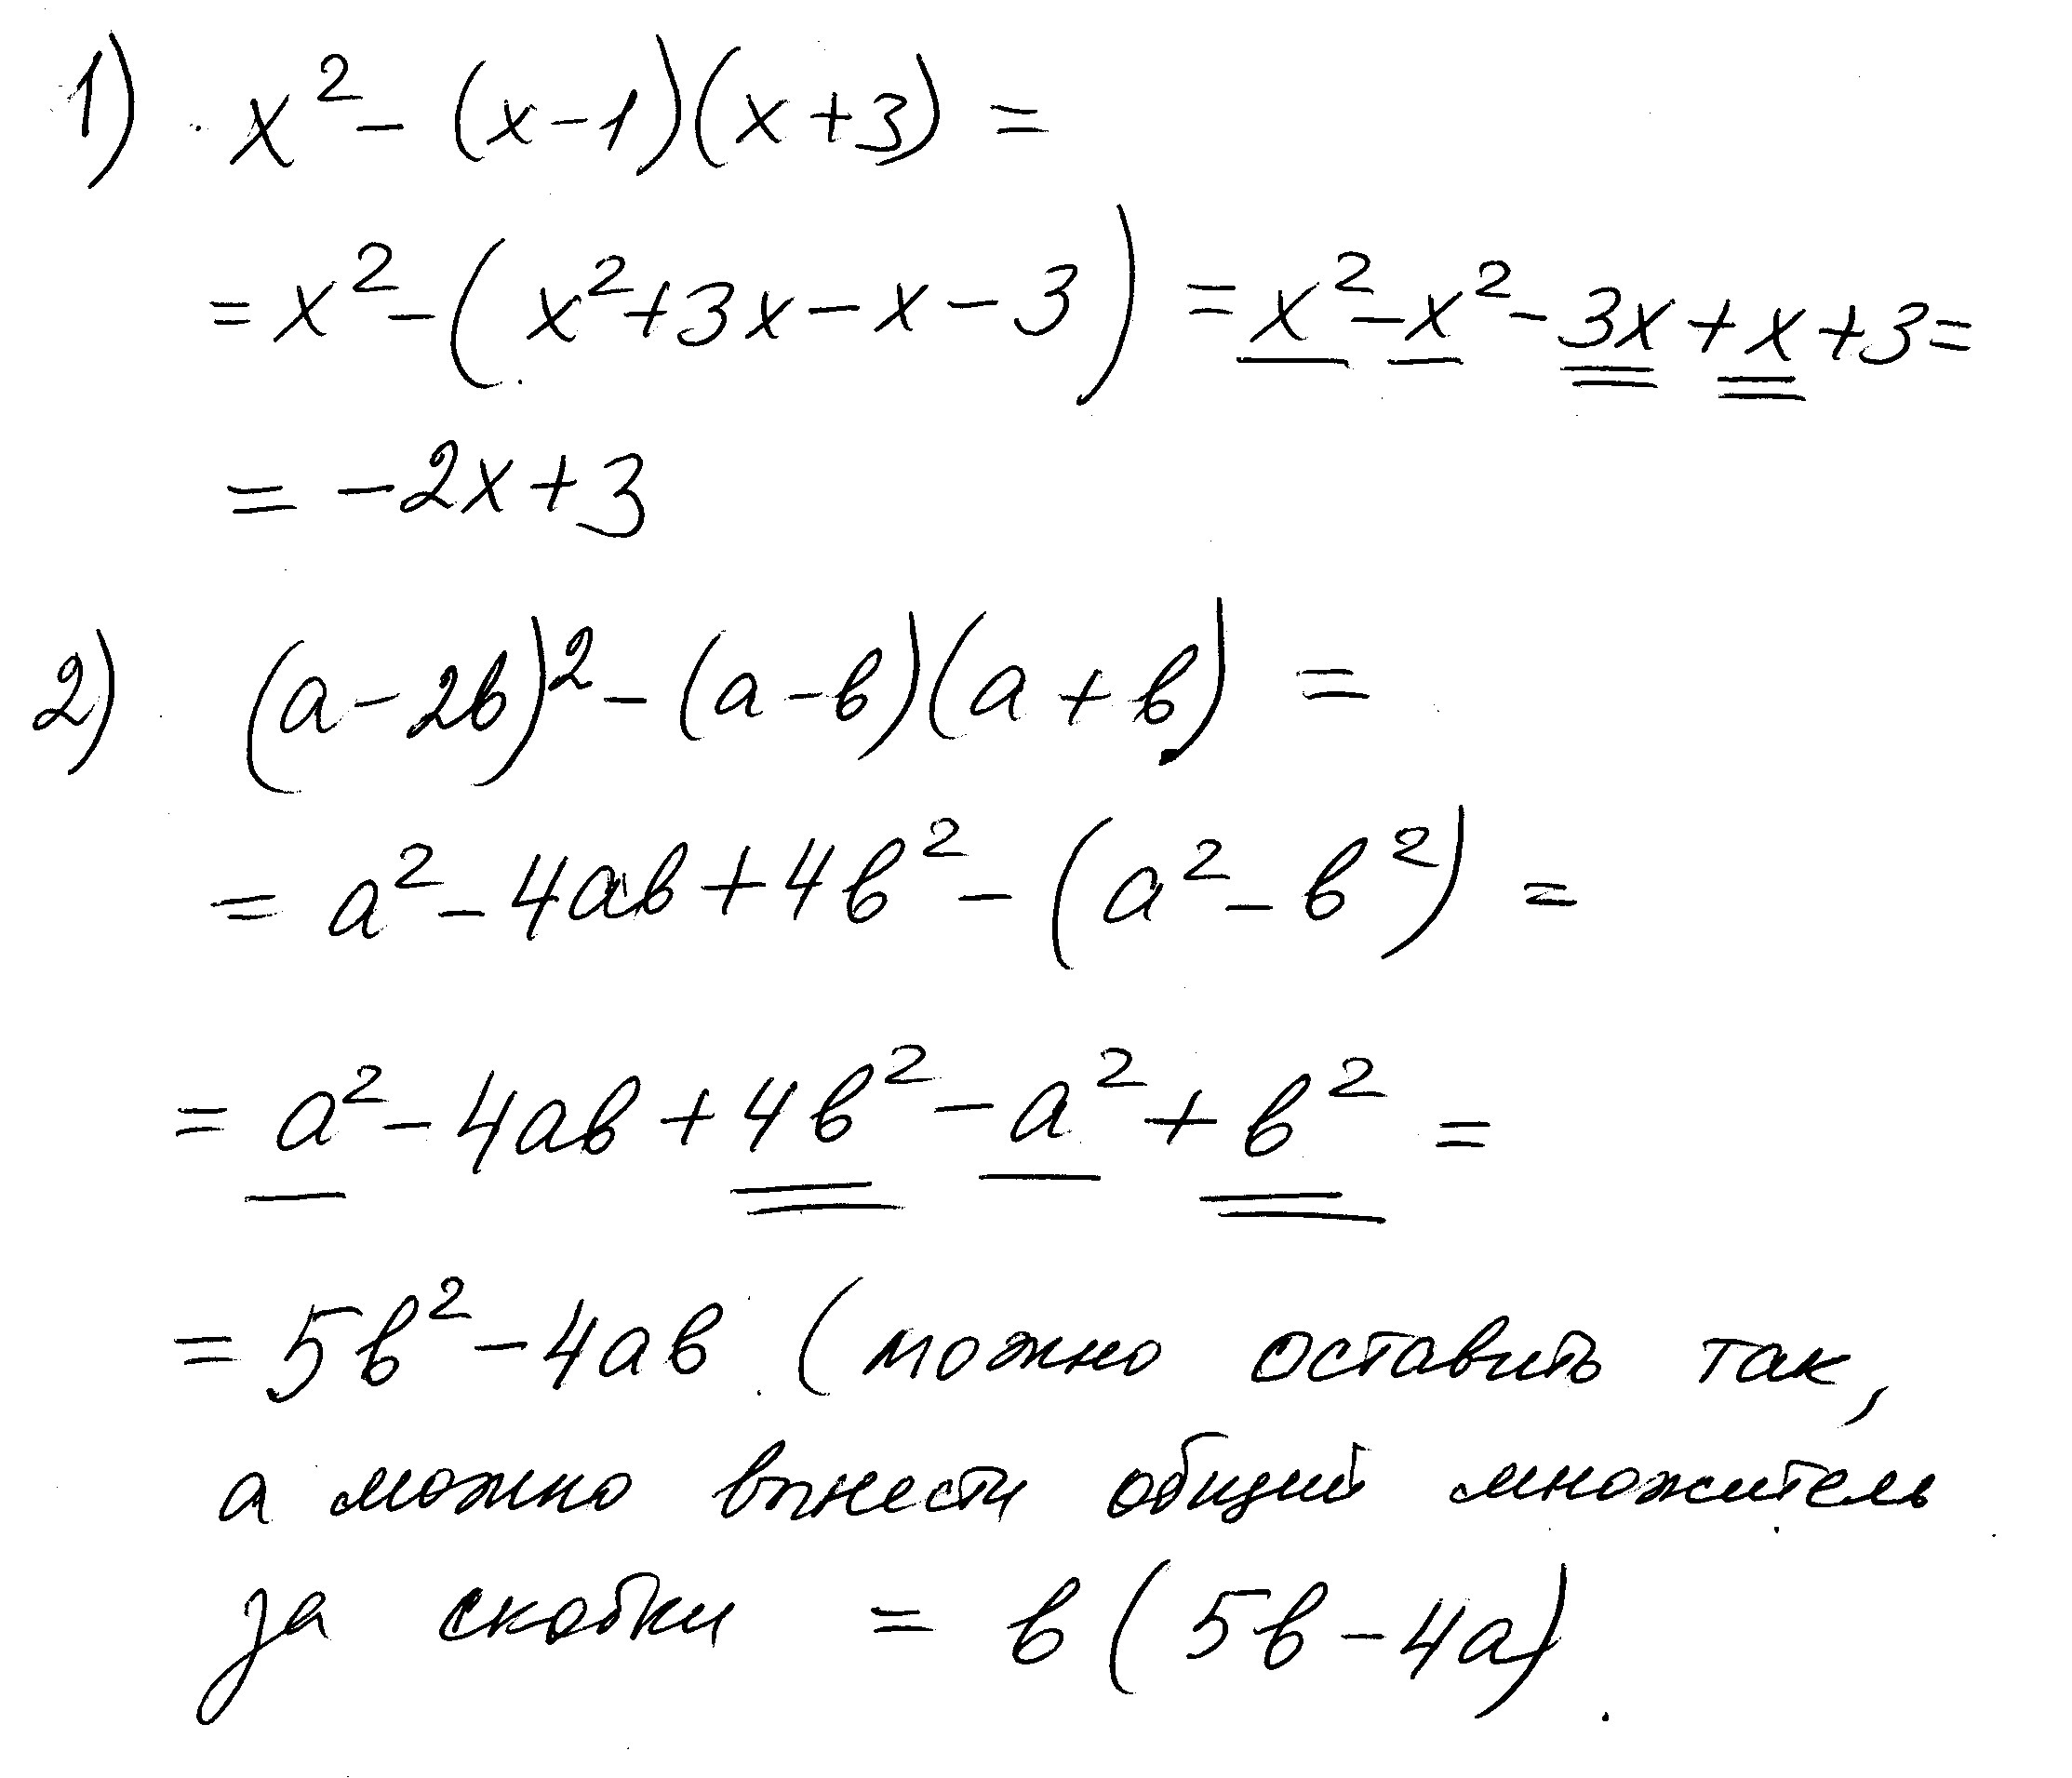 1) x² - (x-1)(x+3) =
= x² - (x²+3x-x-3) = x²-x²-3x+x+3=
= -2x+3
2) (a-2в)² - (a-в)(a+в) =
= a² - 4aв + 4в² - (a² - в²) =
= a² - 4aв + 4в² - a² + в² =
= 5в² - 4aв (можно оставить так,
а можно вынести общий множитель
за скобки = в(5в-4a).